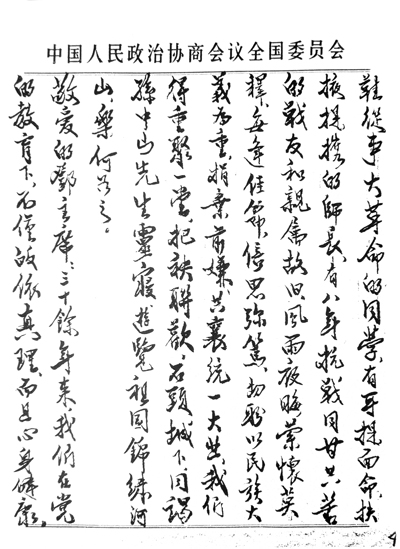 中国人民政治协商会议全国委员会
鞋從事大革命的同學,有耳提面命,扶
掖提携的師長,有八年抗戰同甘共苦
的戰友和親屬故旧,風雨夜晦,縈懷莫
釋,每逢佳節,倍思弥篤,切盼以民族大
義為重,捐棄前嫌,共襄統一大业,我们
得重聚一堂,把袂聯歡,石頭城下,同謁
孫中山先生靈寢,遊覽祖国錦綉河
山,樂何如之。
敬爱的鄧主席:三十餘年来,我們在党
的教育下,不僅皈依真理,而且心身健康,
4